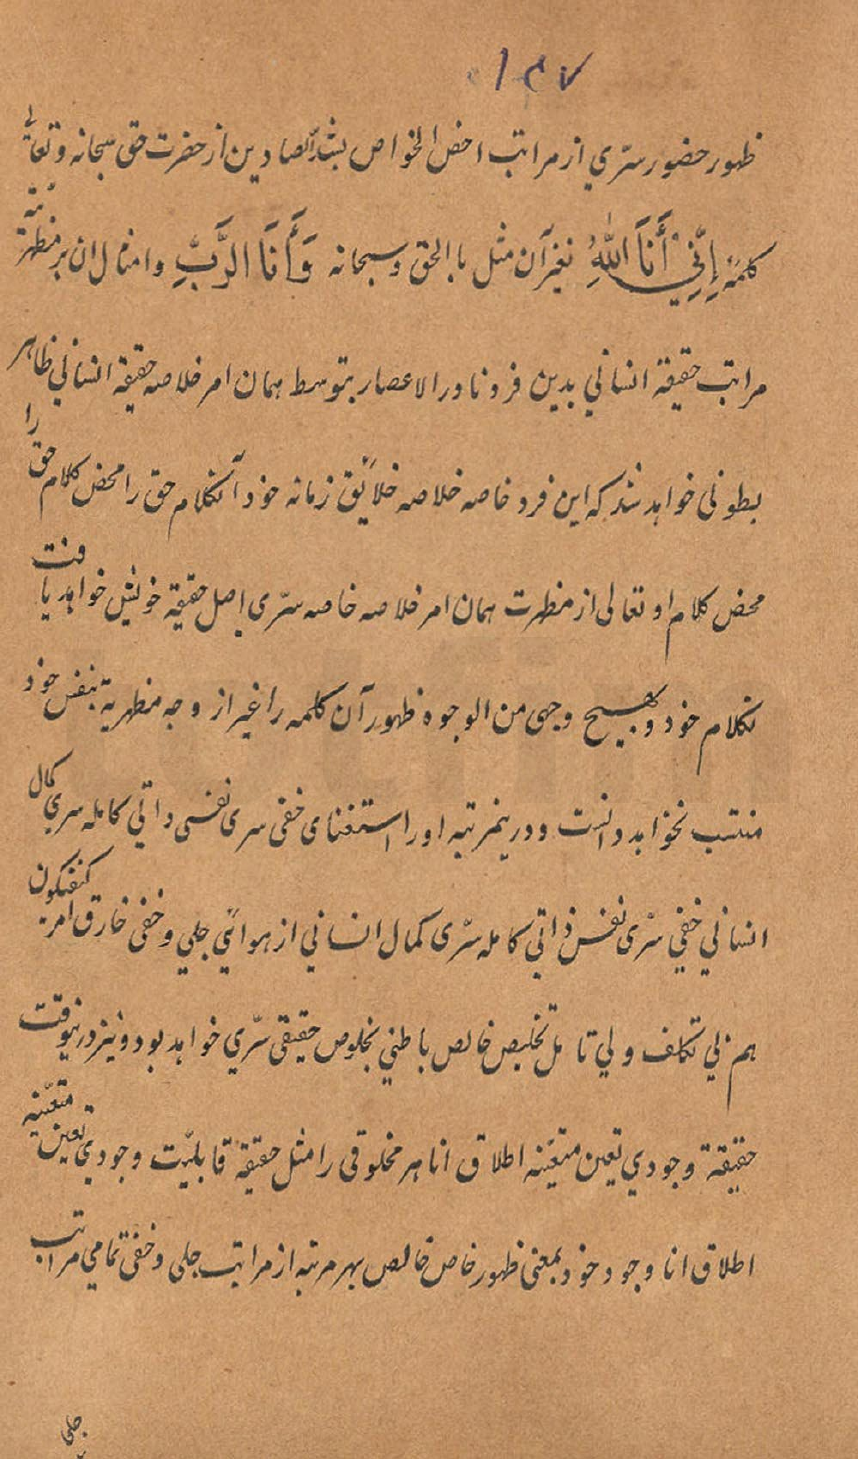 ۱۶۷
ظهور حضور سرّی از مراتب اخص الخواص بشد الصادین از حضرت حق سبحانه و تعالی
کلمهٔ إِنِّی أَنَا اللهُ نغیر آن مثل بالحق و سبحانه وَأَنَا الرَّبُّ و امثال ان بر مظهریة
مراتب حقیقة انسانی بدین فرد نادر الاعصار بتوسط همان امر خلاصه حقیقة انسانی ظاهر
بطونی خواهد شد که این فرد خاصه خلاصه خلائق زمانه خود آنکلام حق را محض کلام حق را
محض کلام او تعالی از مظهرت همان امر خلاصه خاصه سرّی اصل حقیقة خویش خواهد یافت
نکلام خود و بهیچ وجهی من الوجوه ظهور آن کلمه را غیر از وجه مظهریة بنفس خود
منتسب نخواهد دانست و درینمرتبه او را استغنای خفی سری نفسی ذاتی کامله سری کمال
انسانی خفی سرّی نفس ذاتی کامله سرّی کمال انسانی از هوائی جلی و خفی خارق امر کنفیکون
هم نی تکلف و لی تامل تخلیص خالص باطنی بخلوص حقیقی سرّی خواهد بود و نیز درینوقت
حقیقة وجودی تعین متعیّنه اطلاق انا هر مخلوقی را مثل حقیقة قابلیّت وجودی تعین متعیّنه
اطلاق انا وجود خود بمعنی ظهور خاص خالص بهر مرتبه از مراتب جلی و خفی تمامی مراتب
جلی